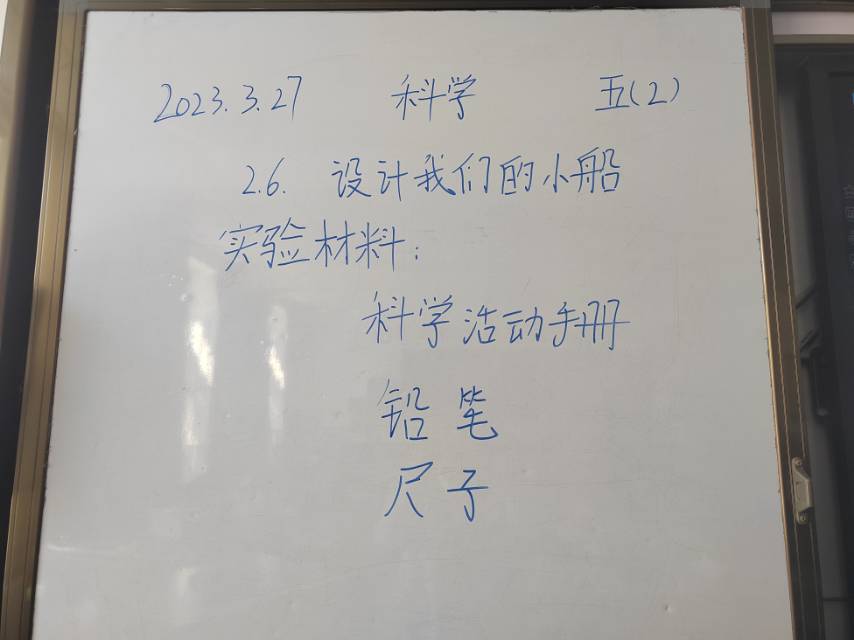 2023.3.27 科学 五(2)
2.6. 设计我们的小船
实验材料:
科学活动手册
铅笔
尺子